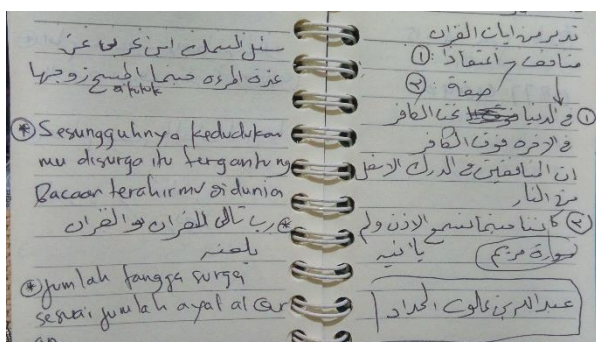 سئل ابن عن
زوجها
* Sesungguhnya kedudukan
mu disurga itu tergantung
Bacaan terahirmu di dunia
* رب تالى للقران والقران
يلعنه
* Jumlah tangga surga
sesuai jumlah ayat al Qur
an
تدبر من ايات القران
منافق اعتقادا : ①
صفة : ②
① في الدنيا الكافر
في الاخرة فوق الكافر
ان المنافقين في الدرك الاسفل
من النار
② نسمع الاذن ولم
سورة مريم
عبدالله بن علوي الحداد